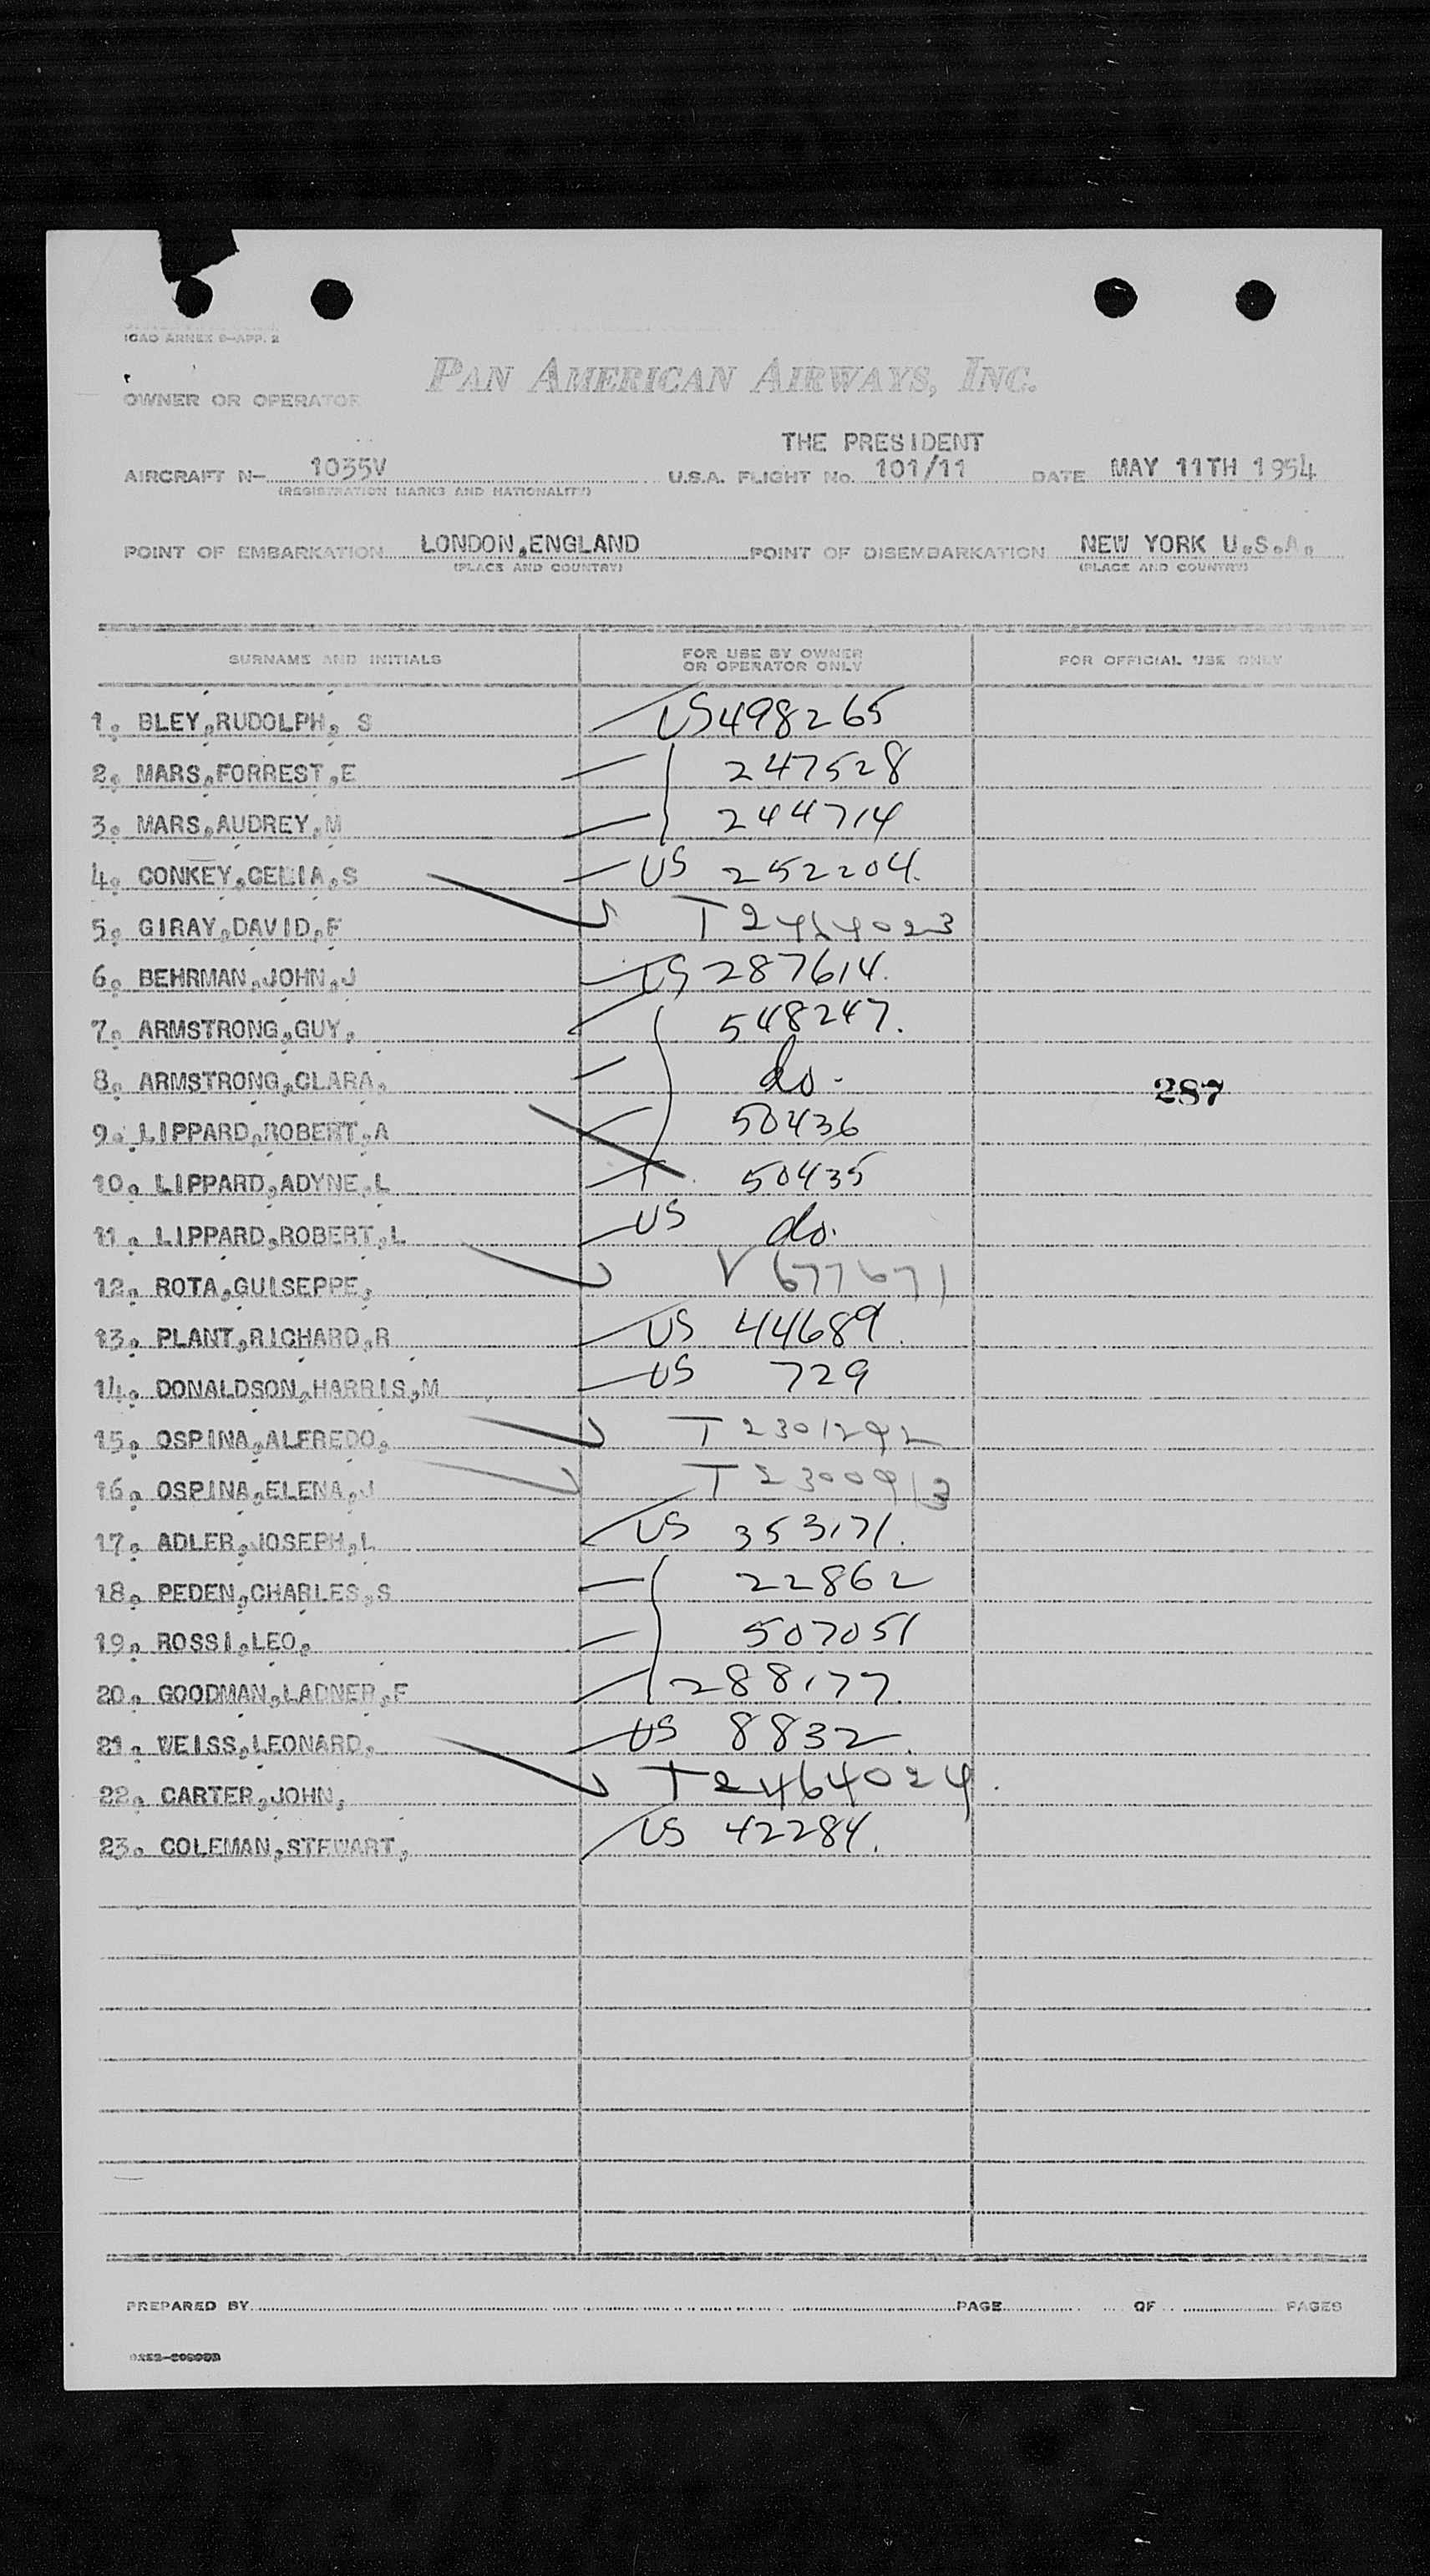 ICAO ANNEX 9—APP. 2
PAN AMERICAN AIRWAYS, INC.
OWNER OR OPERATOR
THE PRESIDENT
AIRCRAFT N— 1035V U.S.A. FLIGHT NO. 101/11 DATE MAY 11TH 1954
(REGISTRATION MARKS AND NATIONALITY)
POINT OF EMBARKATION LONDON,ENGLAND POINT OF DISEMBARKATION NEW YORK U.S.A.
(PLACE AND COUNTRY) (PLACE AND COUNTRY)
SURNAME AND INITIALS FOR USE BY OWNER OR OPERATOR ONLY FOR OFFICIAL USE ONLY
1. BLEY,RUDOLPH, S US498265
2. MARS,FORREST,E 247528
3. MARS,AUDREY,M 244714
4. CONKEY,CELIA,S US 252204.
5. GIRAY,DAVID,F T 2464023
6. BEHRMAN,JOHN,J US 287614.
7. ARMSTRONG,GUY, 548247.
8. ARMSTRONG,CLARA, do. 287
9. LIPPARD,ROBERT,A 50436
10. LIPPARD,ADYNE,L 50435
11. LIPPARD,ROBERT,L US do.
12. ROTA,GUISEPPE, V 677671
13. PLANT,RICHARD,R US 44689.
14. DONALDSON,HARRIS,M US 729
15. OSPINA,ALFREDO, T 2301292
16. OSPINA,ELENA,J T 2300913
17. ADLER,JOSEPH,L US 353171.
18. PEDEN,CHARLES,S 22862
19. ROSSI,LEO, 507051
20. GOODMAN,LADNER,F 288177.
21. WEISS,LEONARD, US 8832.
22. CARTER,JOHN, T 2464024.
23. COLEMAN,STEWART, US 42284.
PREPARED BY PAGE OF PAGES